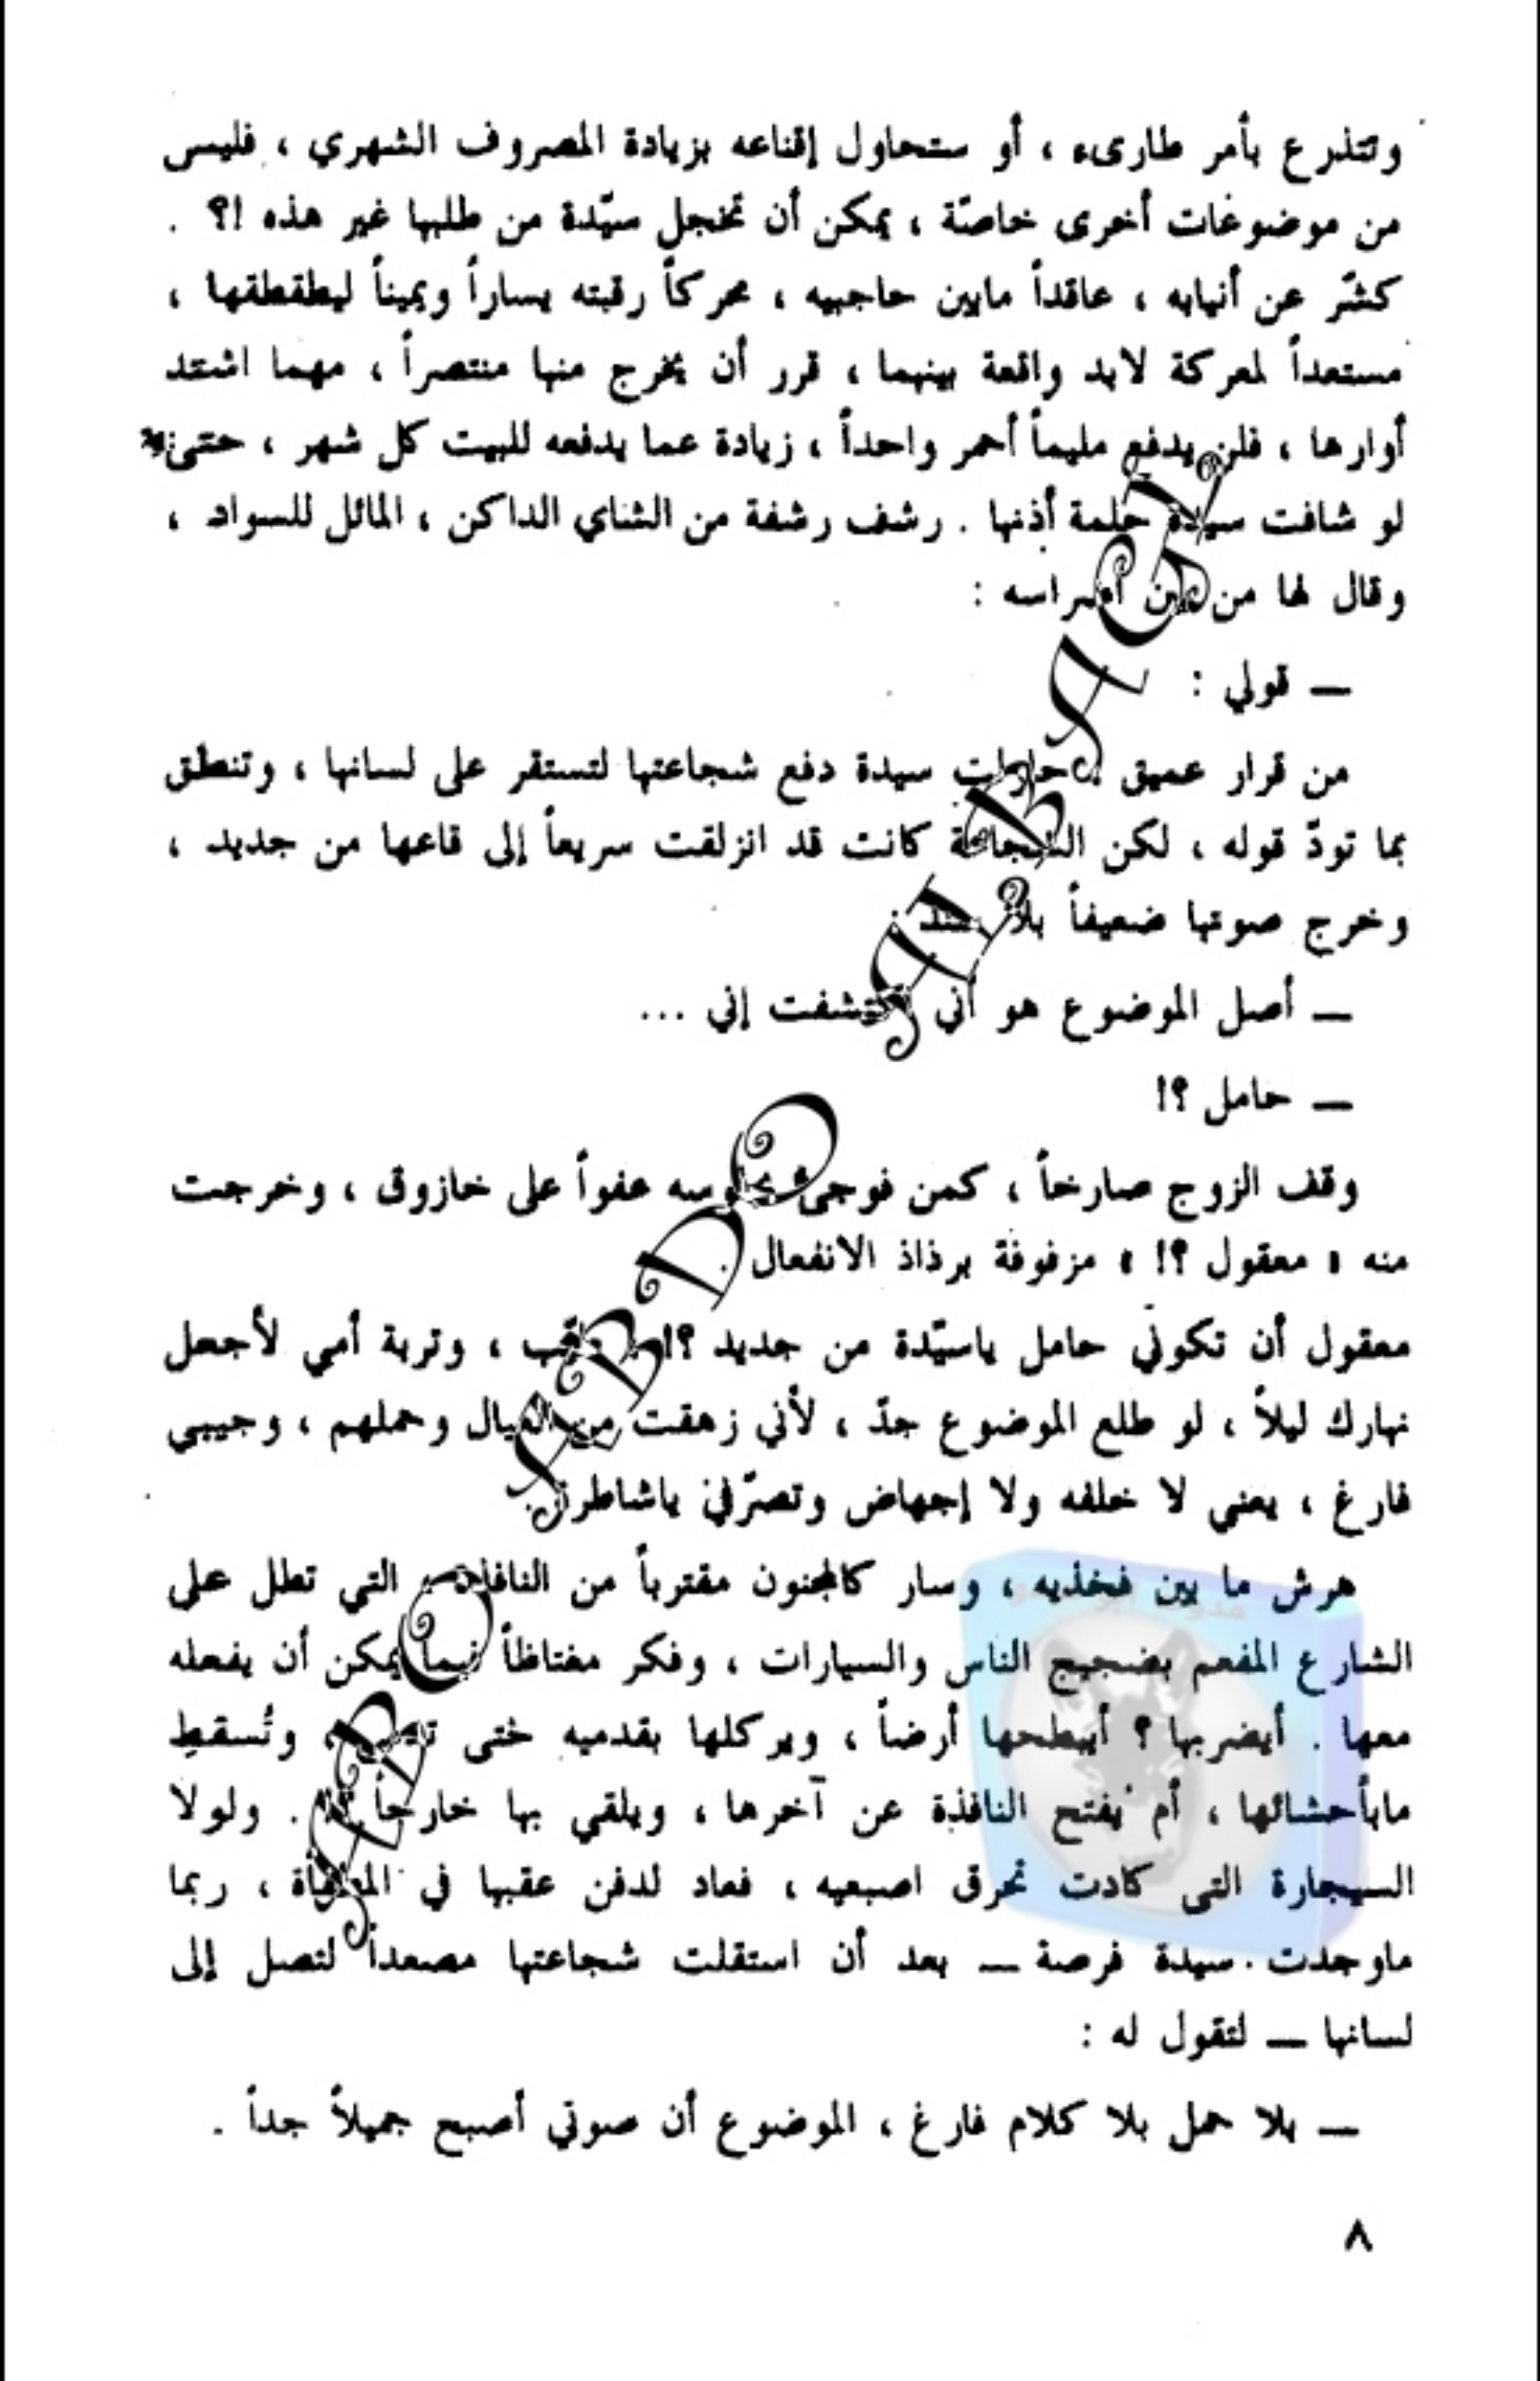 وتتذرع بأمر طارىء ، أو ستحاول إقناعه بزيادة المصروف الشهري ، فليس
من موضوعات أخرى خاصّة ، يمكن أن تخجل سيّدة من طلبها غير هذه !؟ .
كشّر عن أنيابه ، عاقداً مابين حاجبيه ، محركاً رقبته يساراً ويميناً ليطقطقها ،
مستعداً لمعركة لابد واقعة بينهما ، قرر أن يخرج منها منتصراً ، مهما اشتد
أوارها ، فلن يدفع مليماً أحمر واحداً ، زيادة عما يدفعه للبيت كل شهر ، حتى
لو شافت سيدة حلمة أذنها . رشف رشفة من الشاي الداكن ، المائل للسواد ،
وقال لها من بين أضراسه :
— قولي :
من قرار عميق حاولت سيدة دفع شجاعتها لتستقر على لسانها ، وتنطق
بما تودّ قوله ، لكن الشجاعة كانت قد انزلقت سريعاً إلى قاعها من جديد ،
وخرج صوتها ضعيفاً بلا سند :
— أصل الموضوع هو أني اكتشفت إني ...
— حامل ؟!
وقف الزوج صارخاً ، كمن فوجىء بجلوسه عفواً على خازوق ، وخرجت
منه « معقول ؟! » مزفوفة برذاذ الانفعال .
معقول أن تكوني حامل ياسيّدة من جديد ؟! ، وتربة أمي لأجعل
نهارك ليلاً ، لو طلع الموضوع جدّ ، لأني زهقت من العيال وحملهم ، وجيبي
فارغ ، يعني لا خلفه ولا إجهاض وتصرّفي ياشاطرة .
هرش ما بين فخذيه ، وسار كالمجنون مقترباً من النافذة ، التي تطل على
الشارع المفعم بضجيج الناس والسيارات ، وفكر مغتاظاً فيما يمكن أن يفعله
معها . أيضربها ؟ أيبطحها أرضاً ، ويركلها بقدميه حتى وتُسقط
مابأحشائها ، أم يفتح النافذة عن آخرها ، ويلقي بها خارجاً . ولولا
السيجارة التى كادت تحرق اصبعيه ، فعاد لدفن عقبها في المطفأة ، ربما
ماوجدت سيدة فرصة — بعد أن استقلت شجاعتها مصعداً لتصل إلى
لسانها — لتقول له :
— بلا حمل بلا كلام فارغ ، الموضوع أن صوتي أصبح جميلاً جداً .
٨